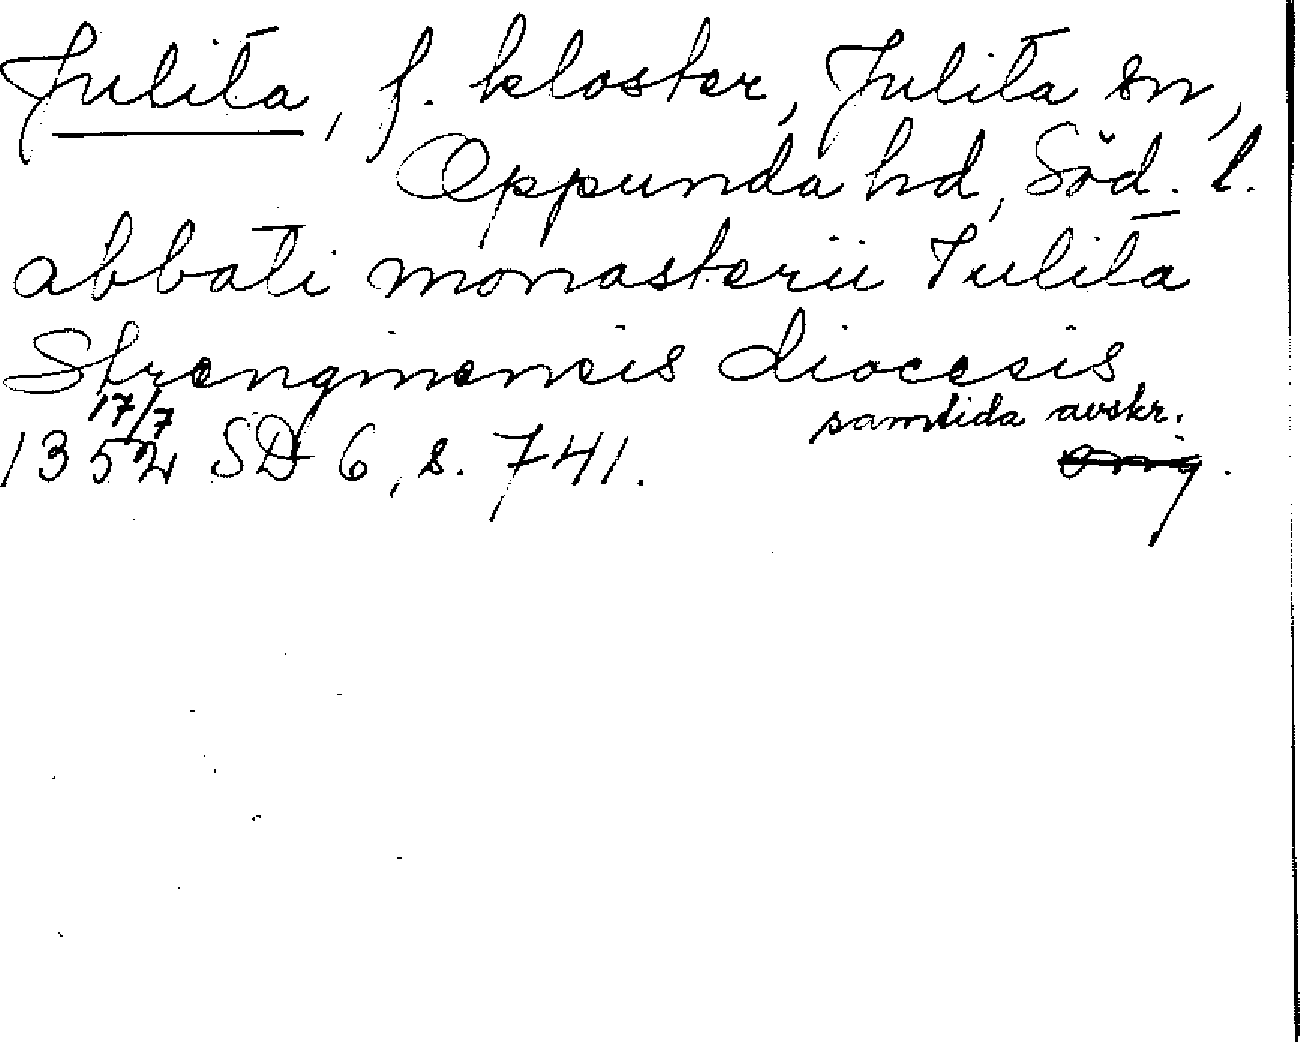 Julita, f. kloster, Julita sn,
Oppunda hd, Söd. l.
abbati monasterii Iulita
Strenginensis diocesis
17/7 samtida avskr.
1352 SD 6, s. 741. orig.